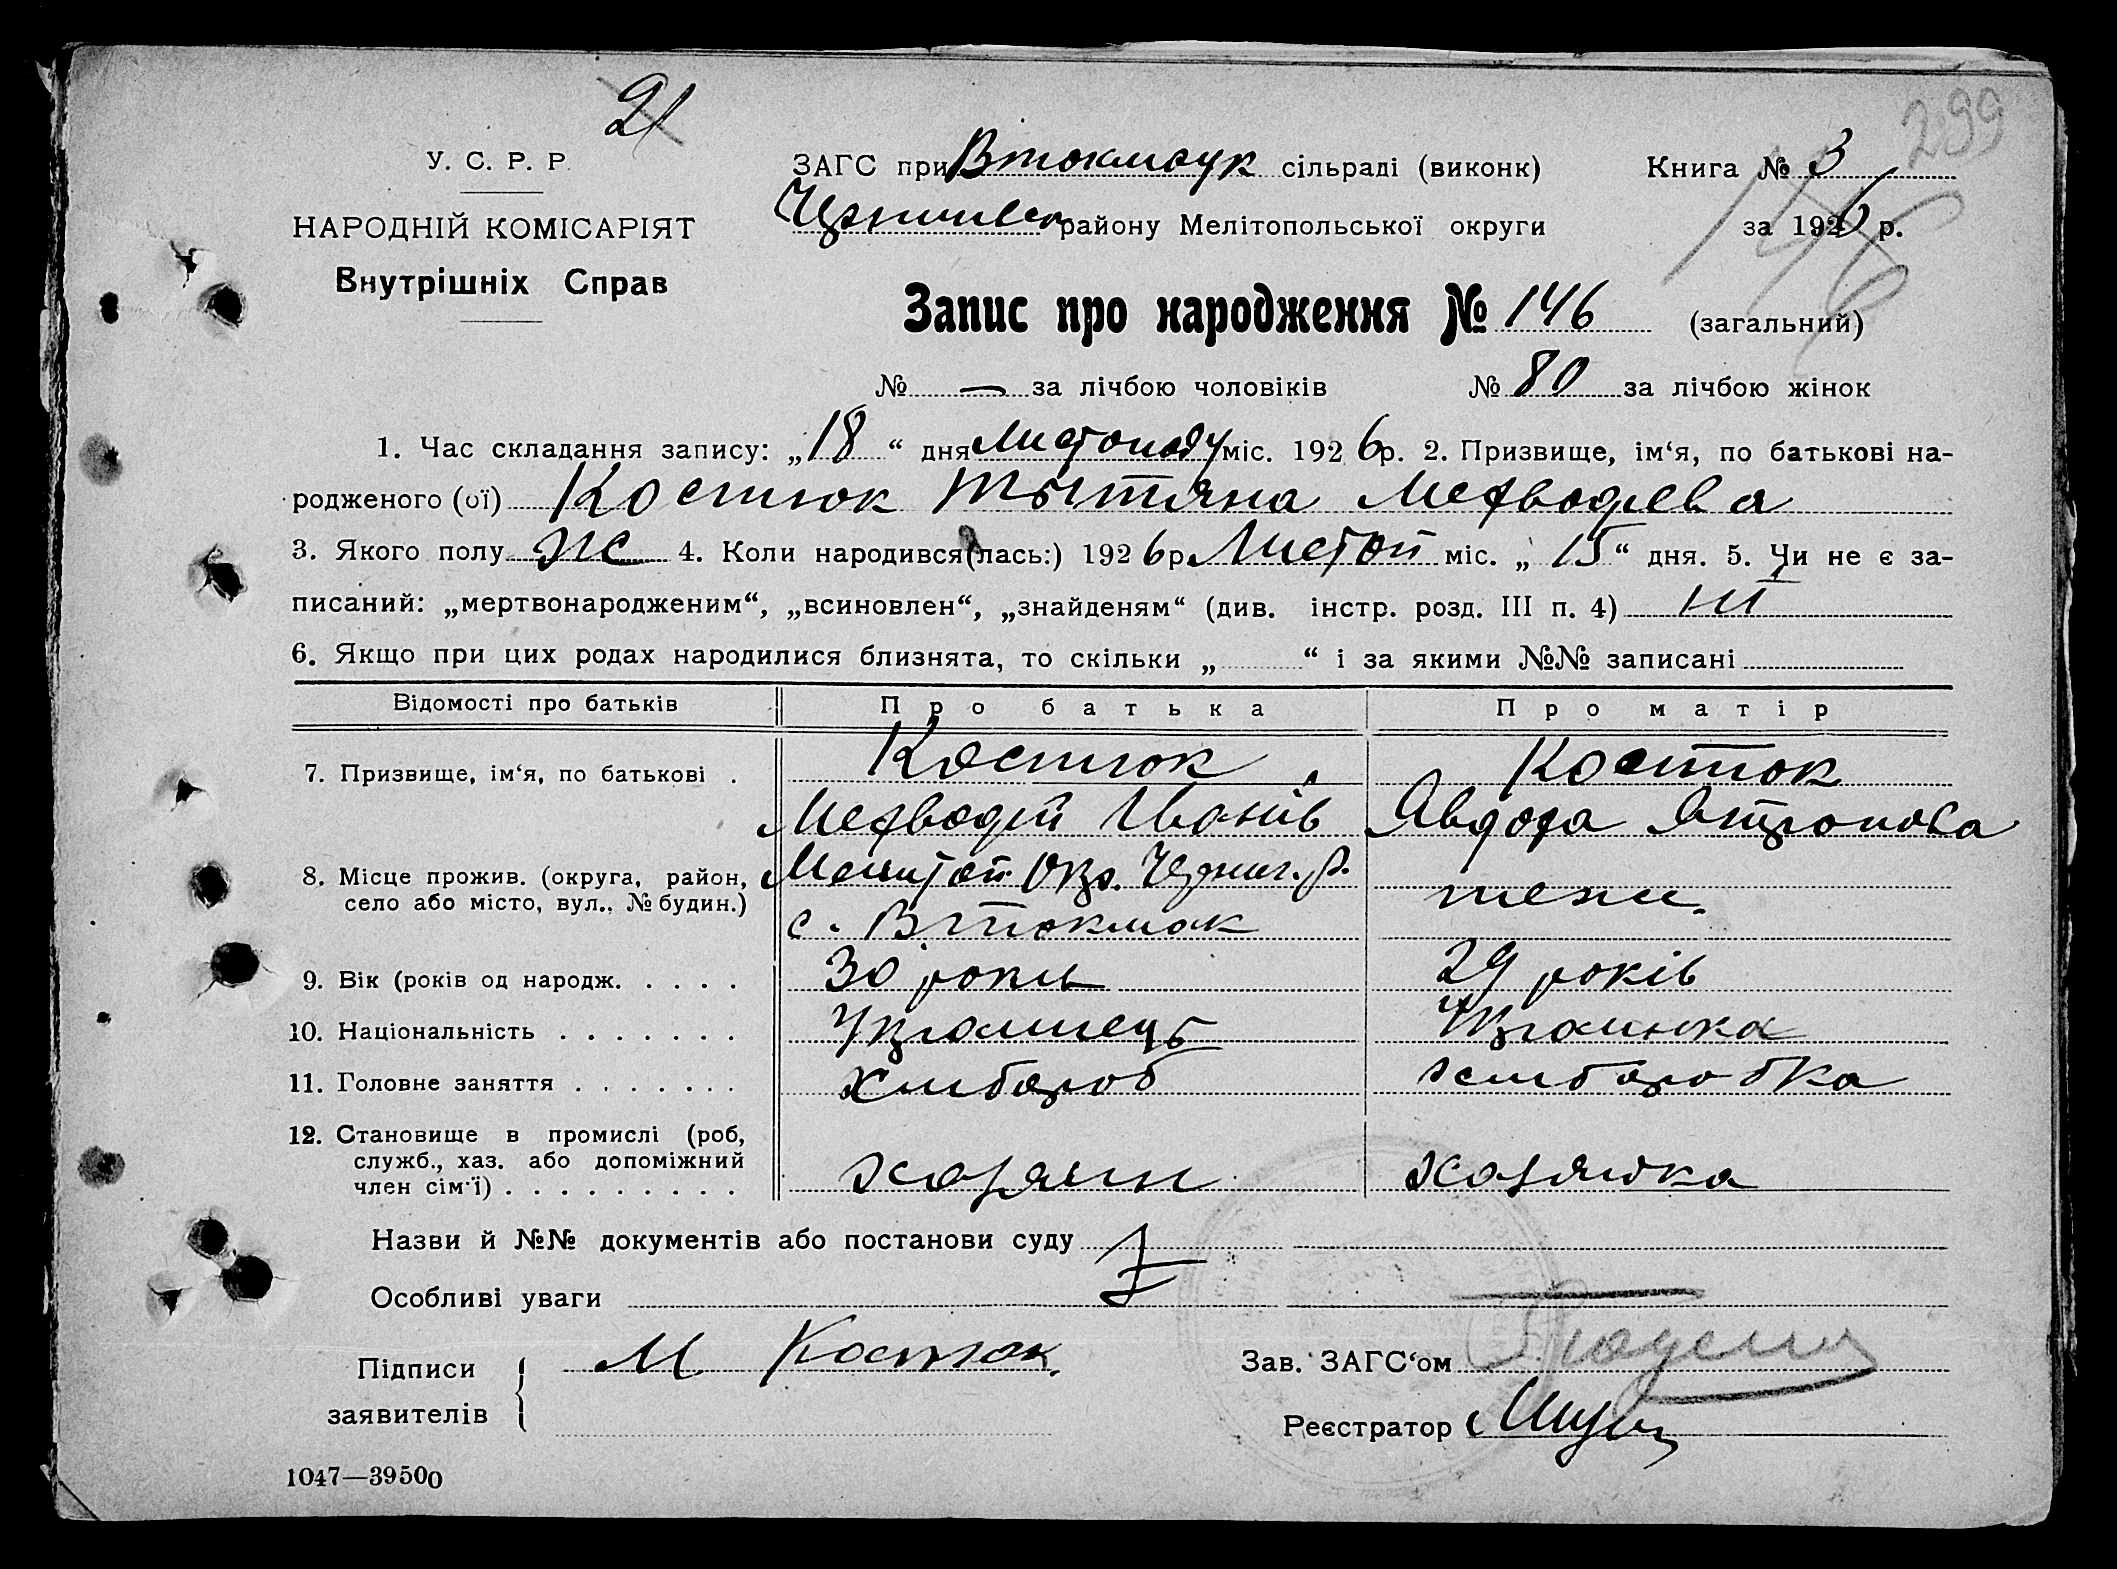 21
299
У. С. Р. Р.
НАРОДНІЙ КОМІСАРІЯТ
Внутрішніх Справ
ЗАГС при Втокмацк сільраді (виконк) Книга № 3
району Мелітопольської округи за 1926 р.
146
Запис про народження № 146 (загальний)
№ — за лічбою чоловіків № 80 за лічбою жінок
1. Час складання запису: „18“ дня Листопаду міс. 1926 р. 2. Призвище, ім‘я, по батькові на-
родженого (ої) Костюк Тытяна Мефводиева
3. Якого полу Ж 4. Коли народився(лась:) 1926 р. Листоп міс. „15“ дня. 5. Чи не є за-
писаний: „мертвонародженим“, „всиновлен“, „знайденям“ (див. інстр. розд. III п. 4) ні
6. Якщо при цих родах народилися близнята, то скільки „ “ і за якими №№ записані
Відомості про батьків Про батька Про матір
7. Призвище, ім‘я, по батькові . Костюк Костюк
Мефводий Іванів Явдоха
8. Місце прожив. (округа, район, Мелитоп. Окр. Черниг. р.
село або місто, вул., № будин.) с. Втокмак тежи.
9. Вік (років од народж. . . . . 30 роки 29 років
10. Національність . . . . . . . Українець Українка
11. Головне заняття . . . . . . . хлибороб хлиборобка
12. Становище в промислі (роб,
служб., хаз. або допоміжний
член сім‘ї) . . . . . . . . . хозяин хозяйка
Назви й №№ документів або постанови суду
Особливі уваги
Підписи заявителів М Костюк.
Зав. ЗАГС‘ом
Реєстратор
1047—39500